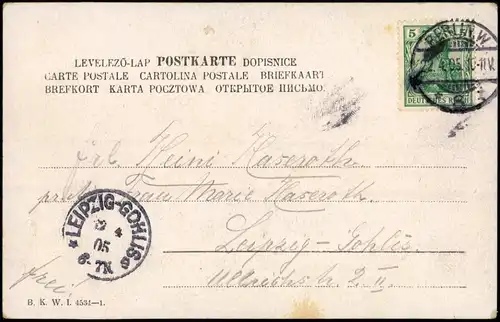 LEVELEZŐ-LAP POSTKARTE DOPISNICE
CARTE POSTALE CARTOLINA POSTALE BRIEFKAART
BREFKORT KARTA POCZTOWA ОТКРЫТОЕ ПИСЬМО.
5
DEUTSCHES REICH
BERLIN, W.
05
Frl. Heini Haseroth
Frau Marie Haseroth
Leipzig-Gohlis
Ulrichstr. 2 II.
LEIPZIG-GOHLIS
4
05
6-7N
frei
B. K. W. I. 4534-1.